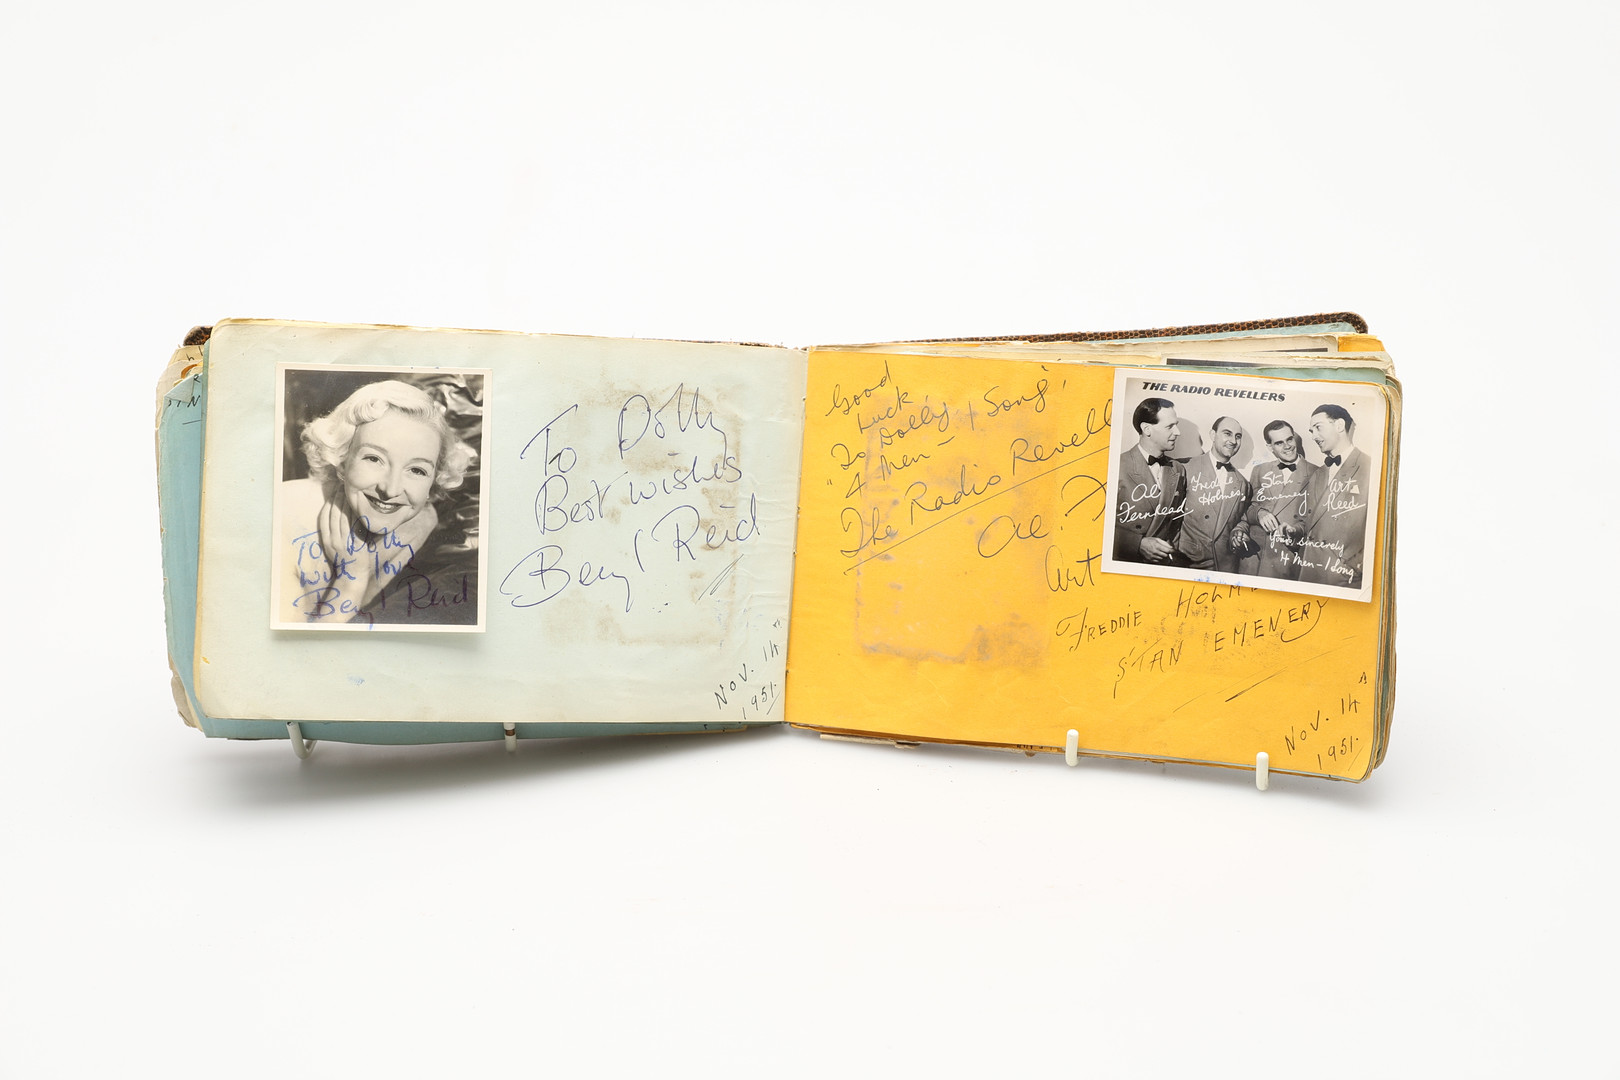 To Dolly
with love
Beryl Reid
To Dolly
Best wishes
Beryl Reid
Nov. 14
1951.
Good
Luck
To Dolly
"4 Men - 1 Song"
The Radio Revell
Al. F
Art
FREDDIE HOLM
STAN EMENERY
Nov. 14
1951.
THE RADIO REVELLERS
Al
Fernhead
Freddie
Holmes
Stan
Emeney
Art
Reed
Yours sincerely
"4 Men - 1 Song"